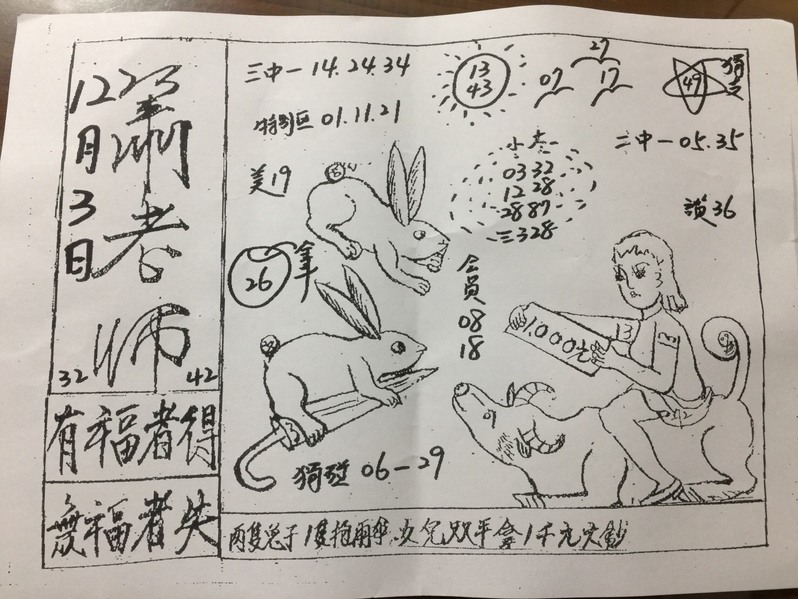 12月3日
蕭老师
32
42
有福者得
無福者失
三中一 14.24.34
13
43
27
07
17
49
特别区 01.11.21
二中一 05.35
03 32
12 28
28 87
三328
美19
讚36
26
会員
08
18
1.000元
13
06-29
两隻兔子1隻抱雨伞